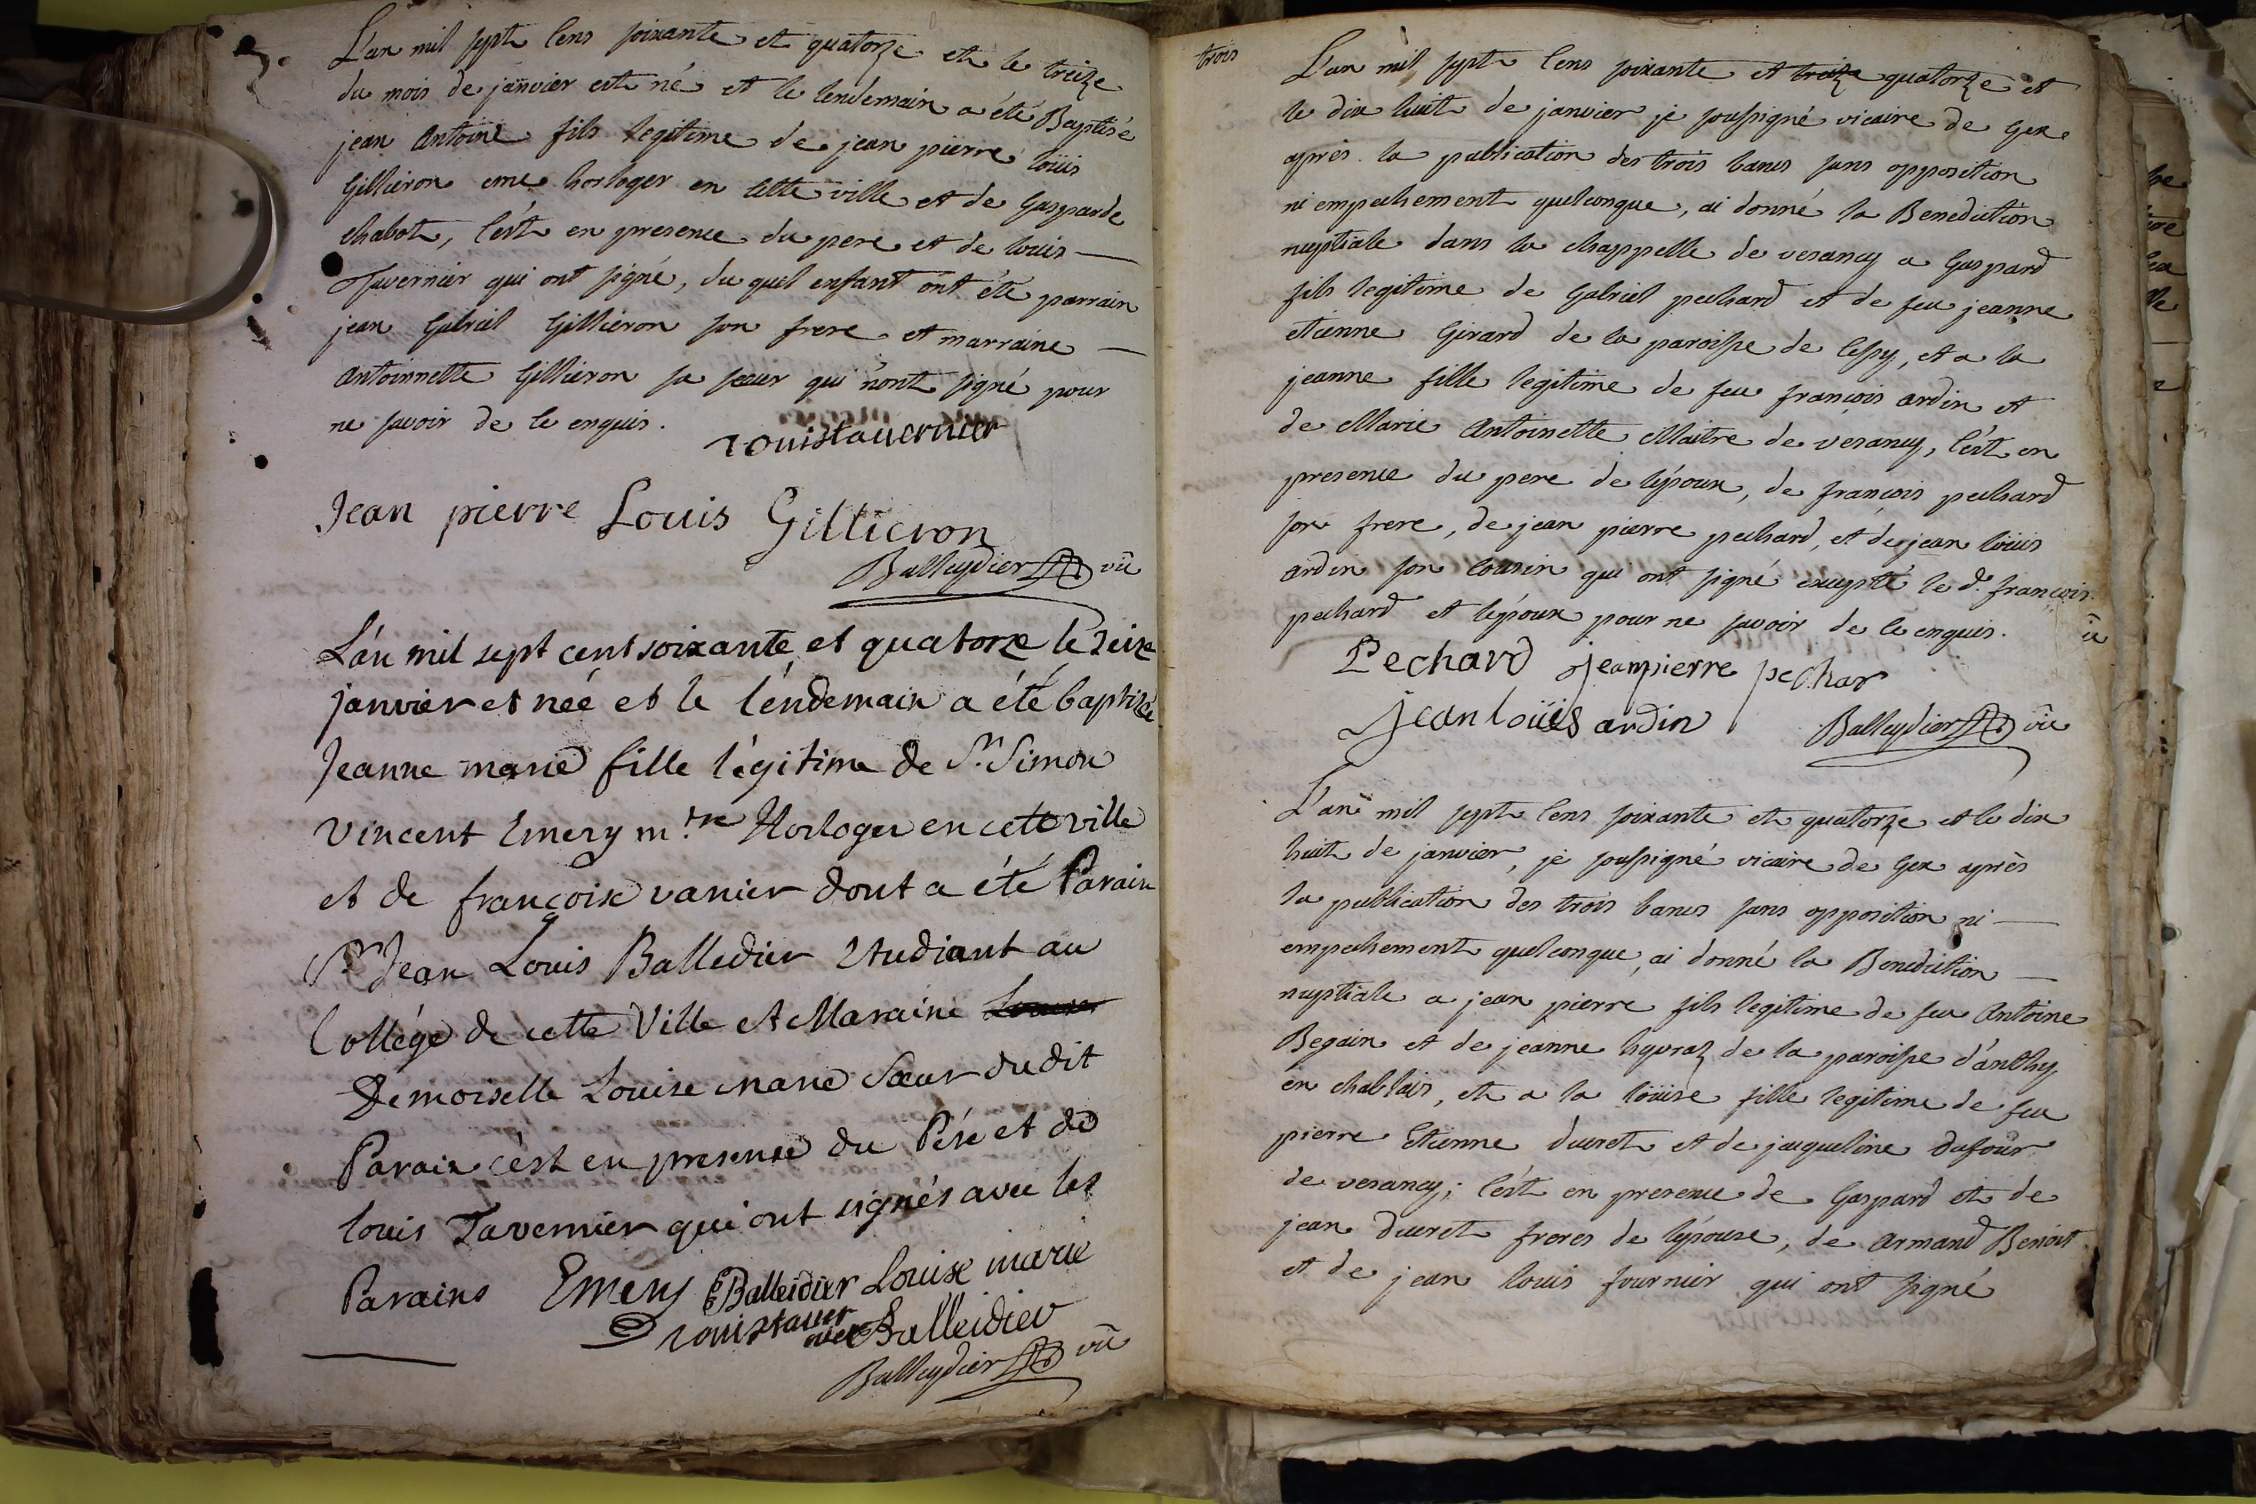 3.
L'an mil sept cens soixante et quatorze et le treize
du mois de janvier est né et le lendemain a été Baptisé
jean Antoine fils legitime de jean pierre loüis
Gilliéron me horloger en cette ville et de Gasparde
chabot, c'est en presence du pere et de louis
Tavernier qui ont signé, du quel enfant ont été parrain
jean Gabriel Gilliéron son frere et marraine
Antoinnette Gilliéron sa sœur qui n'ont signé pour
ne savoir de ce enquis.
Louis tavernier
Jean pierre Louis Gillieron
Balleydier vû
L'an mil sept cent soixante et quatorze le seize
janvier et née et le l'éndemain a été baptisée
Jeanne marie fille légitime de Sr. Simon
Vincent Emery m.tre Horloger en cette ville
et de françoise vanier dont a été Parain
Sr Jean Louis Balledier Etudiant au
Collége de cette Ville et Maraine Louise
Demoiselle Louise marie Sœur dudit
Parain c'ést en presence du Pére et de
louis Tavernier qui ont signés avec les
Parains Emery Balleidier Louise marie
Louis taver
nier Balleidier
Balleydier vû
trois
L'an mil sept cens soixante et treize quatorze et
le dix huit de janvier je soussigné vicaire de Gex
après la publication des trois bancs sans opposition
ni empechement quelconque, ai donné la Benediction
nuptiale dans la chappelle de vesancy a Gaspard
fils legitime de Gabriel pechard et de feu jeanne
etienne Girard de la paroisse de Cessy, et a la
jeanne fille legitime de feu françois ardin et
de Marie Antoinette Maitre de vesancy, c'est en
presence du pere de l'époux, de françois pechard
son frere, de jean pierre pechard, et de jean loüis
ardin son cousin qui ont signé excepté le d. françois
pechard et l'époux pour ne savoir de ce enquis.
Pechard jeanpierre pechar
jean loüis ardin Balleydier vû
L'an mil sept cens soixante et quatorze et le dix
huit de janvier, je soussigné vicaire de Gex après
la publication des trois bancs sans opposition ni
empechement quelconque, ai donné la Benediction
nuptiale a jean pierre fils legitime de feu Antoine
Begain et de jeanne de la paroisse d'anthy
en chablais, et a la loüise fille legitime de feu
pierre Etienne ducret et de jaqueline dufour
de vesancy; c'est en presence de Gaspard et de
jean ducret freres de l'épouse, de Armand Benoit
et de jean louis fournier qui ont signé